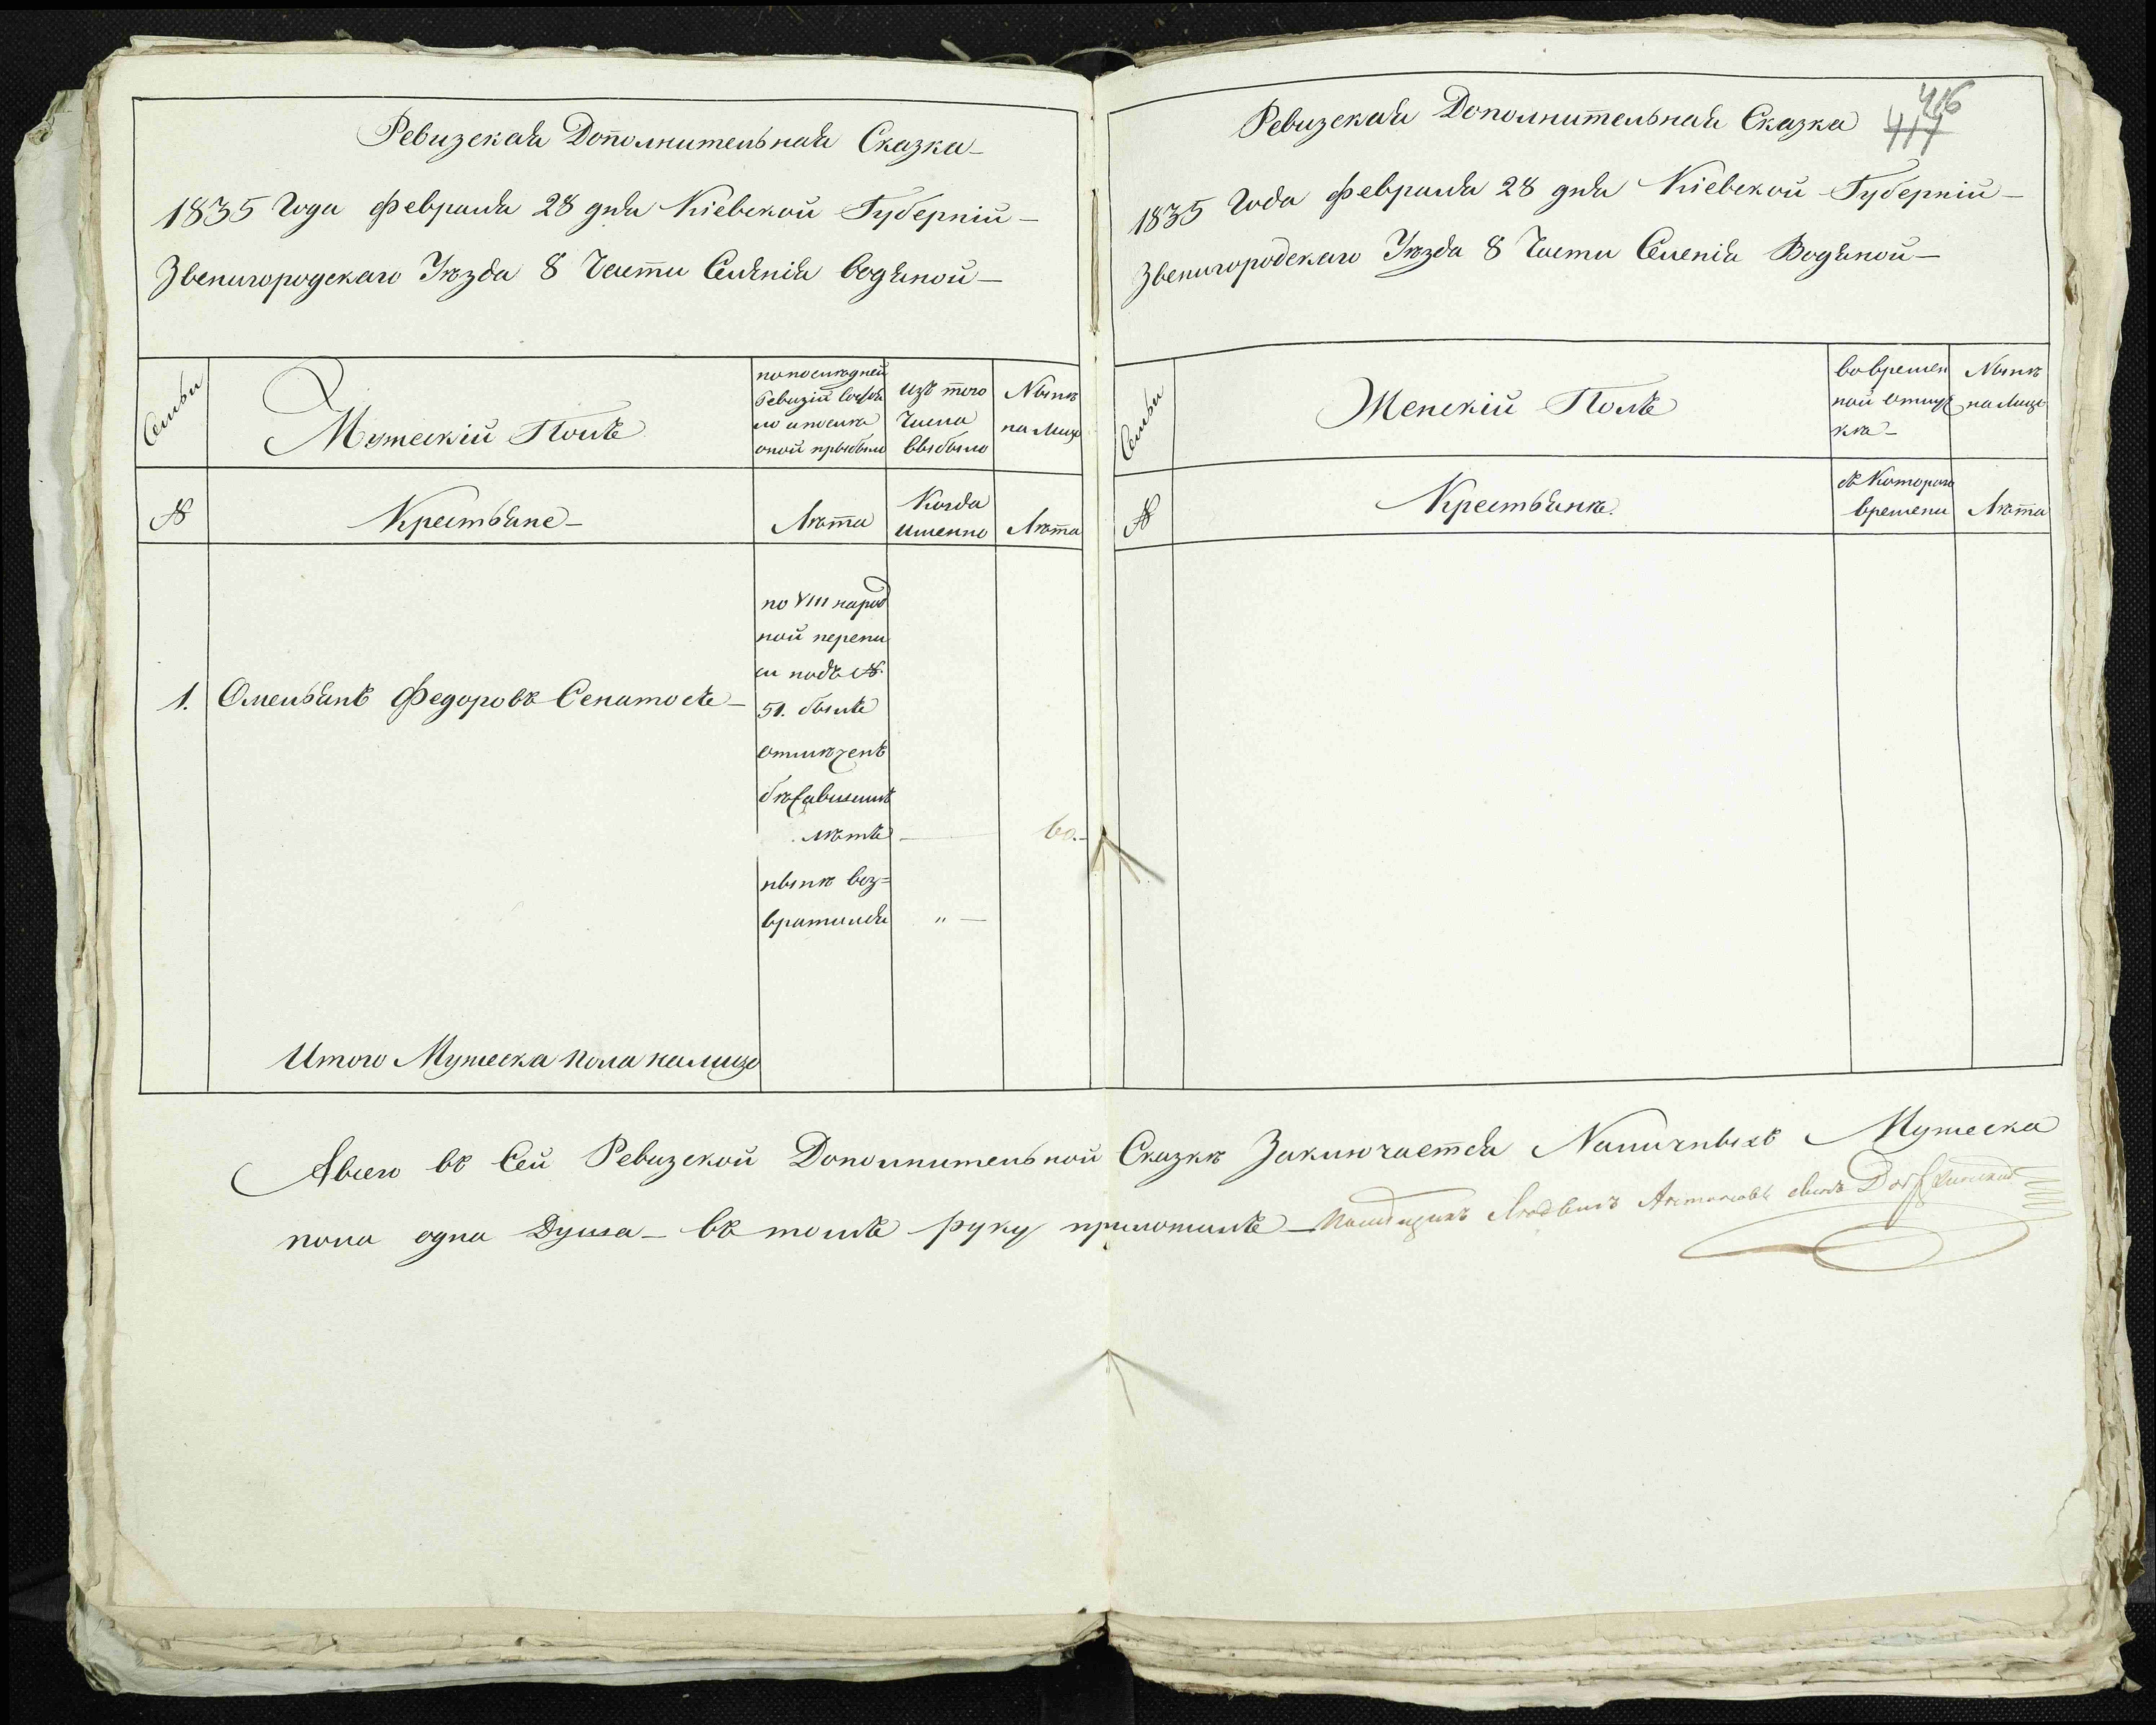 Ревизская Дополнительная Сказка
1835 Года февраля 28 дня Кіевской Губерніи
Звенигородскаго Уѣзда 8 Части Селенія водяной
Семьи
Мужескій Полъ
по последней
Ревизіи состоя
ло и после
оной прибыло
изъ того
Числа
выбыло
Нынѣ
на лицо
№
Крестьяне
Лѣта
Когда
именно
Лѣта
1. Омельянъ Федоровъ Сенатосъ
по VIII народ
ной перепи
си подъ №
51. былъ
отмѣченъ
бѣжавшимъ
лѣтъ
60.
нынѣ воз=
вратился "
Итого Мужеска пола на лицо
416
417
Ревизская Дополнительная Сказка
1835 Года февраля 28 дня Кіевской Губерніи
Звенигородскаго Уѣзда 8 Части Селенія Водяной
Семьи
Женскій Полъ
во времен
ной отлуч
кѣ
Нынѣ
на лицо
№
Крестьянкѣ
съ Котораго
времени
Лѣта
А всего въ Сей Ревизской Дополнительной Сказкѣ Заключается Наличныхъ Мужеска
пола одна Душа въ томъ руку приложилъ Помѣщикъ Людвигъ Антоновъ сынъ